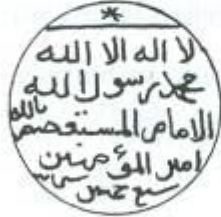 لا اله الا الله
محمد رسول الله
الامام المستعصم بالله
امير المؤمنين
سبع خمسين